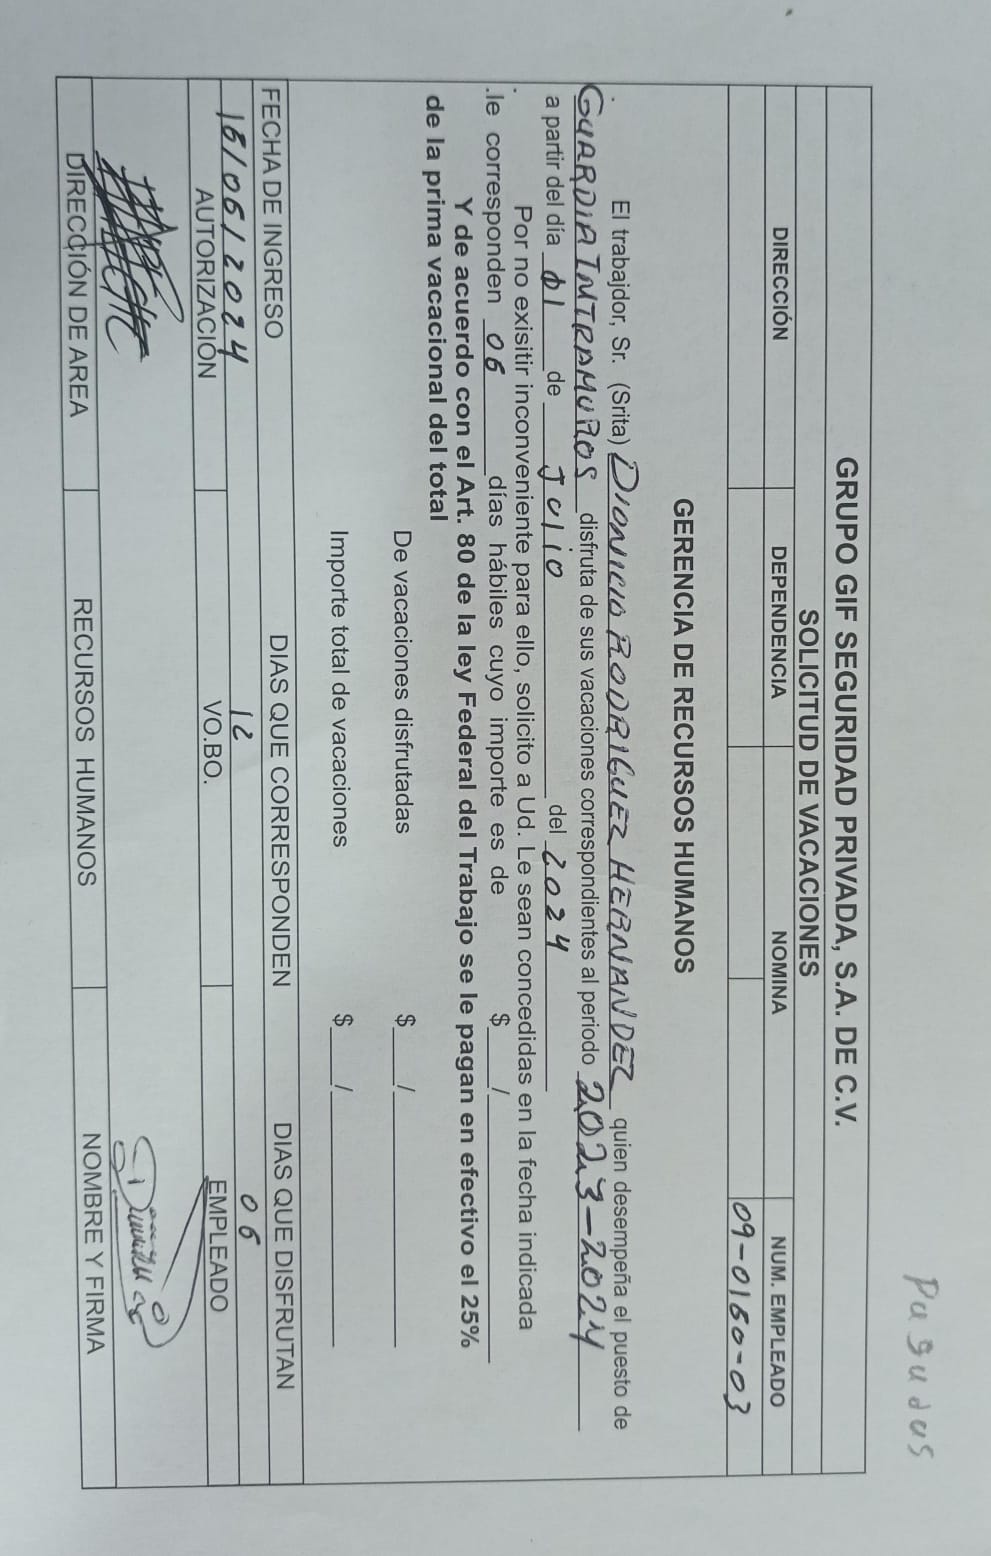 Pagadas
GRUPO GIF SEGURIDAD PRIVADA, S.A. DE C.V.
SOLICITUD DE VACACIONES
DIRECCIÓN DEPENDENCIA NOMINA NUM. EMPLEADO
09-0160-03
GERENCIA DE RECURSOS HUMANOS
El trabajdor, Sr. (Srita) DIONICIO RODRIGUEZ HERNANDEZ quien desempeña el puesto de
GUARDIA INTRAMUROS disfruta de sus vacaciones correspondientes al periodo 2023-2024
a partir del día 01 de Julio del 2024
Por no exisitir inconveniente para ello, solicito a Ud. Le sean concedidas en la fecha indicada
.le corresponden 06 días hábiles cuyo importe es de $ /
Y de acuerdo con el Art. 80 de la ley Federal del Trabajo se le pagan en efectivo el 25%
de la prima vacacional del total
De vacaciones disfrutadas $ /
Importe total de vacaciones $ /
FECHA DE INGRESO DIAS QUE CORRESPONDEN DIAS QUE DISFRUTAN
16/06/2024 12 06
AUTORIZACIÓN VO.BO. EMPLEADO
DIRECCIÓN DE AREA RECURSOS HUMANOS NOMBRE Y FIRMA